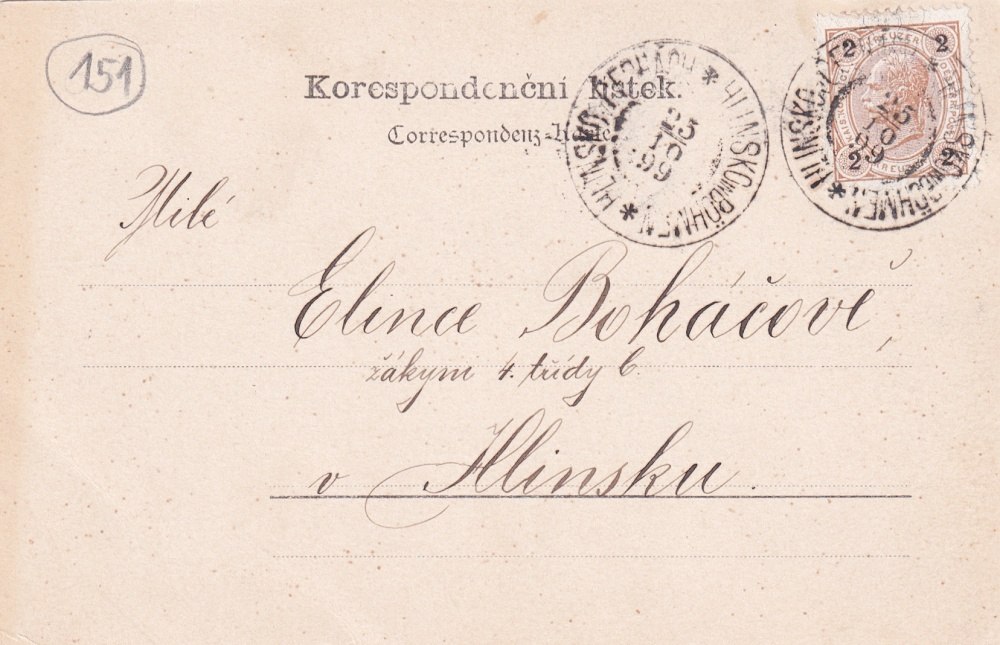 151
Korespondenční lístek.
Correspondenz-Karte
HLINSKO V ČECHÁCH * HLINSKO IN BÖHMEN *
25
10
99
HLINSKO
BÖHMEN *
25
10
99
2 2
2 2
KREUZER
Milé
Elince Boháčové,
žákyni 4. třídy b.
v Hlinsku.